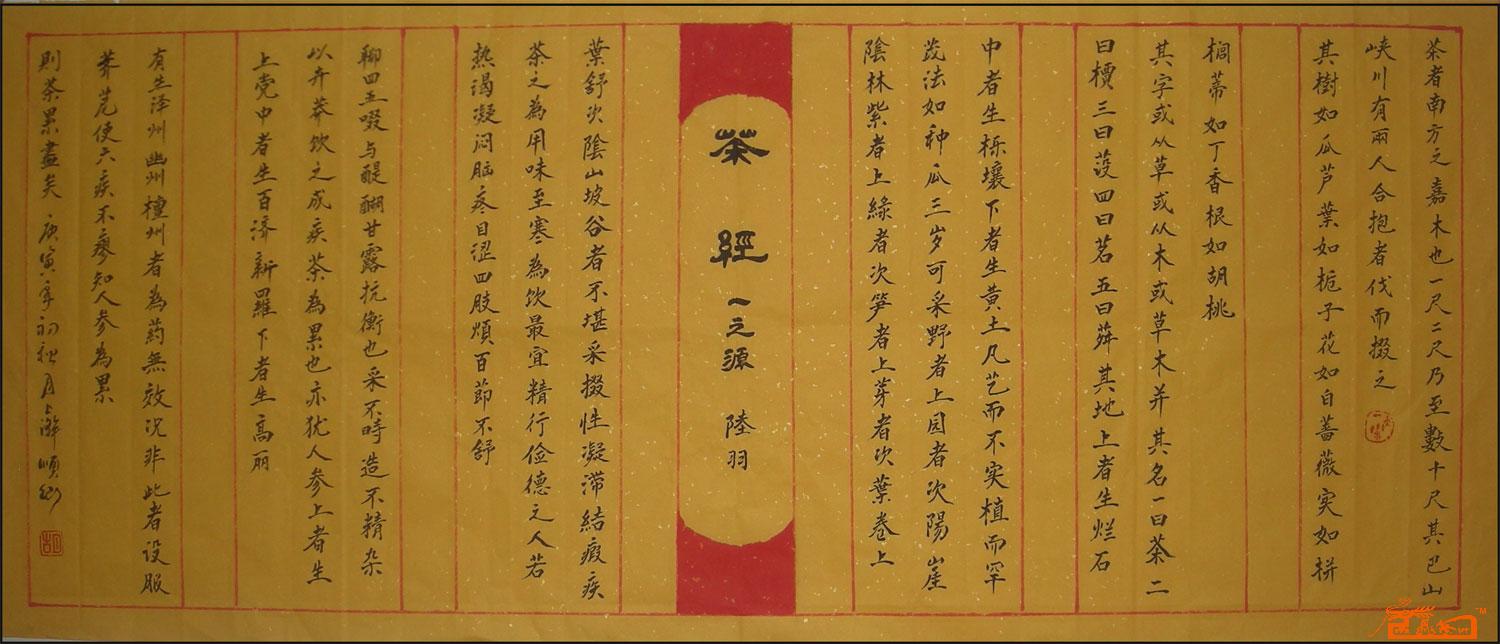 茶者南方之嘉木也一尺二尺乃至數十尺其巴山
峡川有兩人合抱者伐而掇之
其樹如瓜芦葉如栀子花如白蔷薇实如栟
榈蒂如丁香根如胡桃
其字或从草或从木或草木并其名一曰茶二
曰檟三曰蔎四曰茗五曰荈其地上者生烂石
中者生栎壤下者生黄土凡艺而不实植而罕
茂法如种瓜三岁可采野者上园者次陽崖
陰林紫者上綠者次笋者上芽者次葉卷上
茶經
一之源
陸羽
葉舒次陰山坡谷者不堪采掇性凝滞結瘕疾
茶之為用味至寒為饮最宜精行俭德之人若
热渴凝闷脑疼目涩四肢煩百節不舒
聊四五啜与醍醐甘露抗衡也采不時造不精杂
以卉莽饮之成疾茶為累也亦犹人参上者生
上党中者生百济新羅下者生高丽
有生泽州幽州檀州者為药無效况非此者设服
荠苨使六疾不廖知人参為累
則茶累盡矣 庚寅年初秋月上澣順